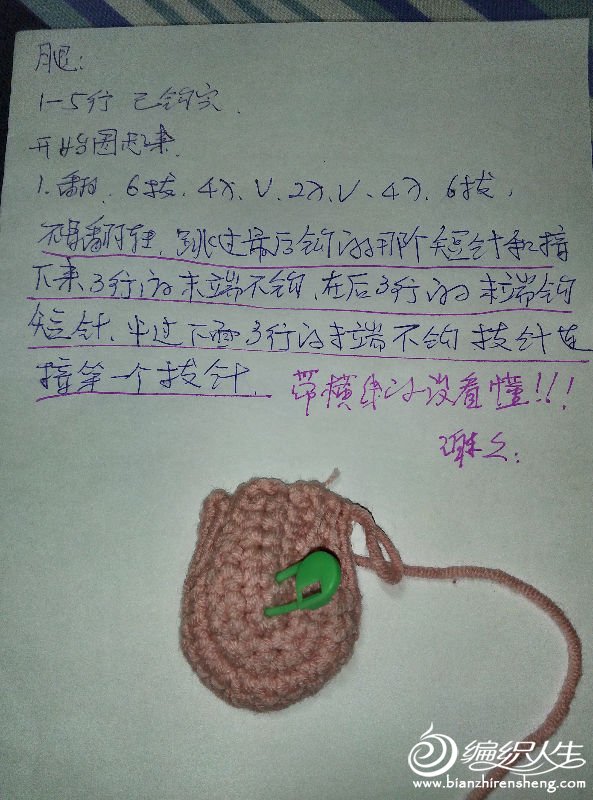 腿:
1-5行 已钩完.
开始圈起来.
1.翻, 6拔, 4入, V, 2入, V, 4入, 6拔,
不要翻转, 跳过最后钩的那个短针和接
下来3行的末端不钩, 在后3行的末端钩
短针, 跳过下面3行的末端不钩 拔针连
接第一个拔针.
带横线的没看懂!!!
谢谢:
编织人生
www.bianzhirensheng.com